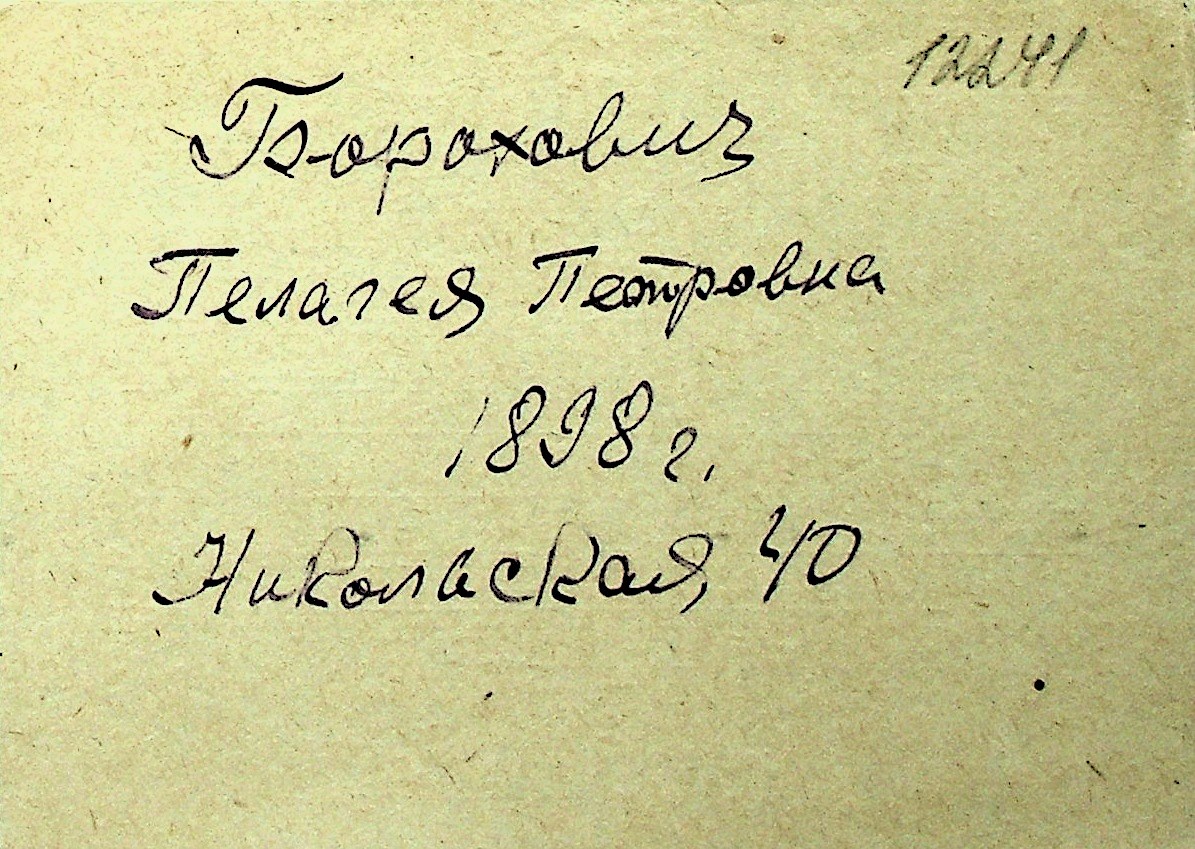 12241
Борохович
Пелагея Петровна
1898 г.
Никольская, 40